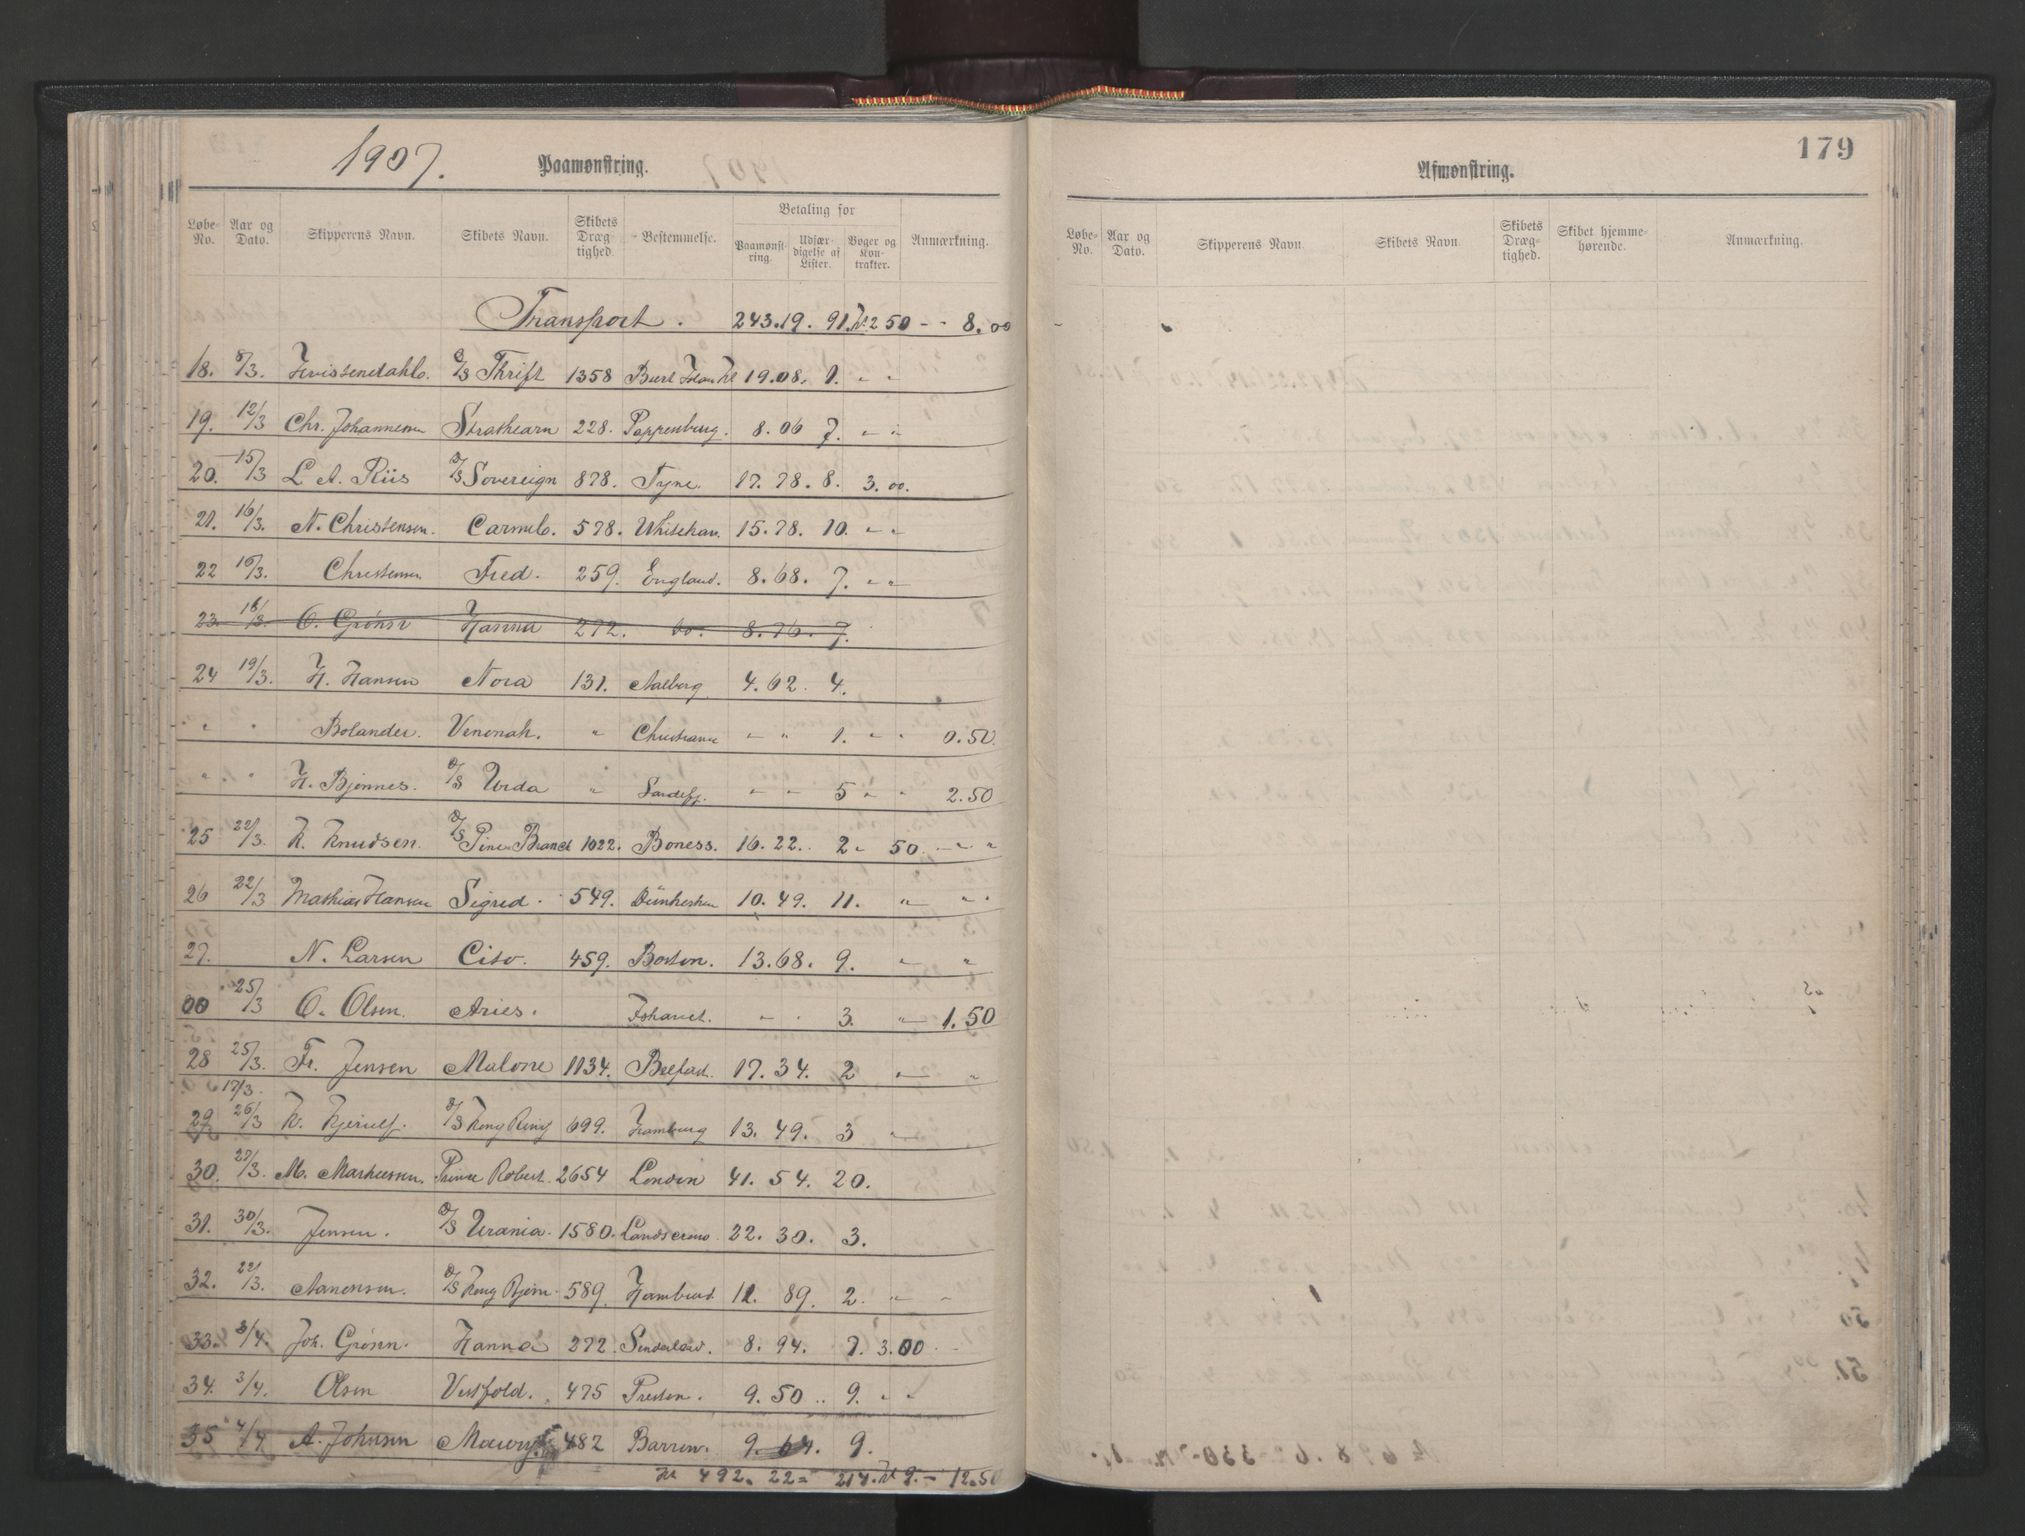 1907.
Paamønstring.
Løbe-No. Aar og Dato. Skipperens Navn. Skibets Navn. Skibets Dræg-tighed. Bestemmelse. Betaling for Paamønst-ring. Udfær-digelse af Lister. Bøger og Kon-trakter. Anmærkning.
Transport. 243.19. 91. 2 50 - - 8.00
18. 8/3. D/S Thrift 1358 19.08. 1. " "
19. 12/3 Chr. Johannesen Strathearn 228. Pappenburg. 8.06 7. " "
20. 15/3 L. A. Riis D/S Sovereign 878. Tyne. 17.78. 8. 3.00.
21. 16/3. N. Christensen. 578. 15.78. 10. " "
22 16/3. Christensen Fred. 259. England. 8.68. 7. " "
23. 18/3. Hanna 272. do. 8.76. 7.
24 19/3. H. Hansen Nora 131. Aalborg 4.62. 4.
" " Bolander. Venonah. " " " 1. " " 0.50.
" " H. Bjønnes. D/S Urda " Sandefj. " " 5 " " 2.50
25 22/3. K. Knudsen. D/S Pine Branch 1022. Boness. 16.22. 2 " 50. " "
26 22/3 Mathias Hansen Sigrid. 549. 10.49. 11. " "
27. N. Larsen Cito. 459. Boston. 13.68. 9. " "
00 25/3 O. Olsen. Aries. " " 3. " 1.50
28 25/3. Fr. Jensen Malone 1134. Belfast. 17.34. 2 " "
17/3.
29 26/3 K. Kjerulf. D/S Kong Ring 699. Hamburg 13.49. 3 "
30. 27/3. M. Mathiesen. Prince Robert. 2654 London 41.54. 20.
31. 30/3. Jensen. D/S Urania. 1580. 22.30. 3.
32. 22/3. Aanensen. D/S Kong Bjørn. 589. 89. 2. " "
33. 3/4. Joh. Grønn. Hanna 272. Sunderland. 8.94. 7. 3.00. -
34. 3/4. Olsen Vestfold. 475 Preston. 9.50.. 9. " "
35 4/4 A. Johnsen 482 Barrow. 9.64. 9.
Kr 492.22 = 217. Kr 9.- 12.50
179
Afmønstring.
Løbe-No. Aar og Dato. Skipperens Navn. Skibets Navn. Skibets Dræg-tighed. Skibet hjemme-hørende. Anmærkning.